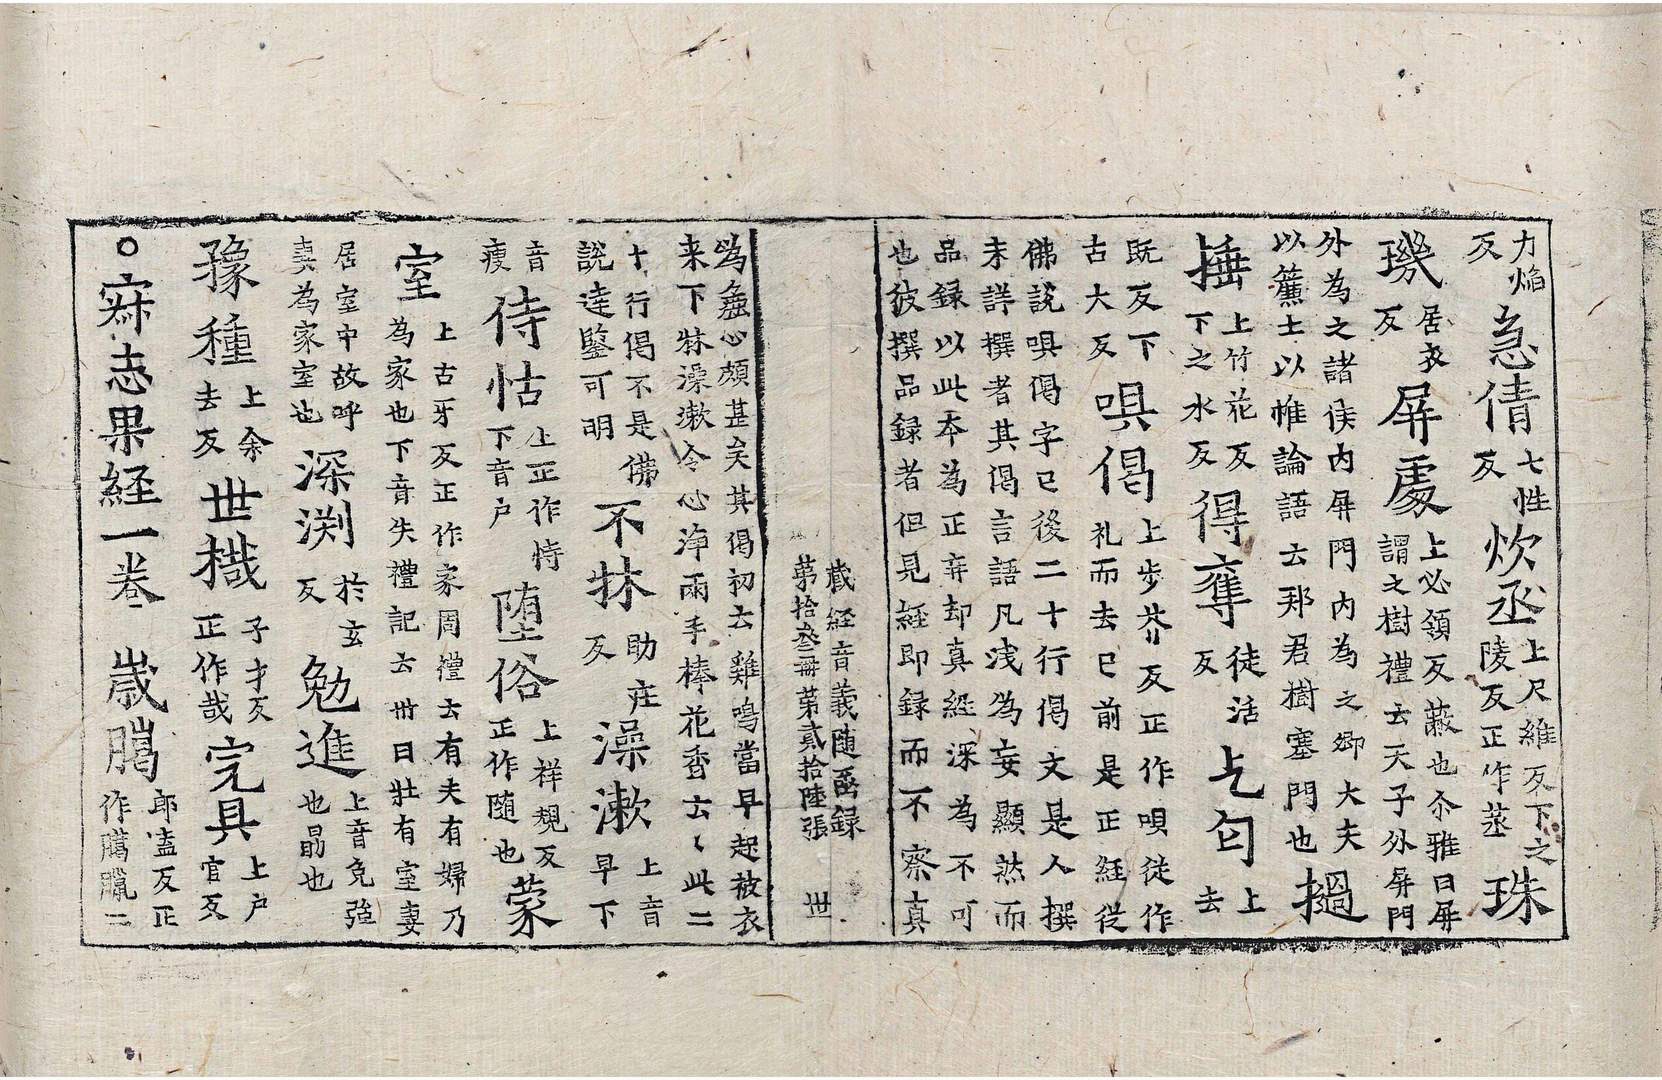 力焰反急倩七性反炊丞上尺維反下之陵反正作蒸珠
璣居衣反屏處上必領反蔽也尒雅曰屏謂之樹禮云天子外屏門
外為之諸侯内屏門内為之卿大夫以簾士以帷論語云邦君樹塞門也撾
捶上竹花反下之水反得奪徒活反乞匂上去
既反下古大反唄偈上步芥反正作唄徒作礼而去已前是正経従
佛說唄偈字已後二十行偈文是人撰未詳撰者其偈言語凡浅為妄顯然而
品録以此本為正弃却真経深為不可也彼撰品録者但見経即録而不察真
藏経音義随函録
第拾叁冊第貳拾陸張 世
為蠡心頗甚矣其偈初云雞鳴當早起被衣来下牀澡漱令心淨兩手棒花香云〻此二
十行偈不是佛說達鑒可明不牀助庄反澡漱上音早下
音瘦侍怙上正作恃下音户堕俗上祥覌反正作随也蒙
室上古牙反正作家周禮云有夫有婦乃為家也下音失禮記云丗曰壯有室妻
居室中故呼妻為家室也深渕於玄反勉進上音免強也勗也
豫種上余去反世樴子才反正作哉完具上户官反
○寂志果経一卷 歲臈郎盍反正作臈臘二